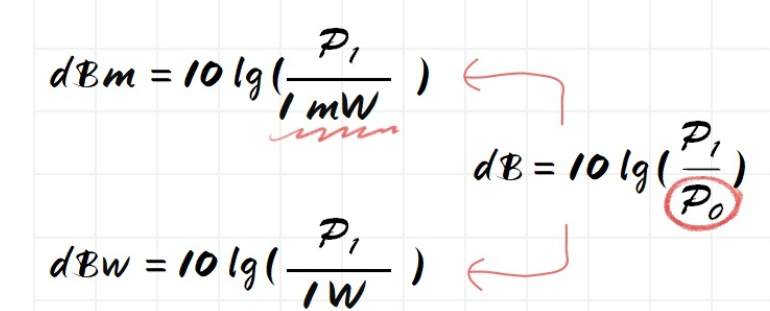 dBm = 10 lg(P₁ / 1 mW)
dB = 10 lg(P₁ / P₀)
dBw = 10 lg(P₁ / 1 W)